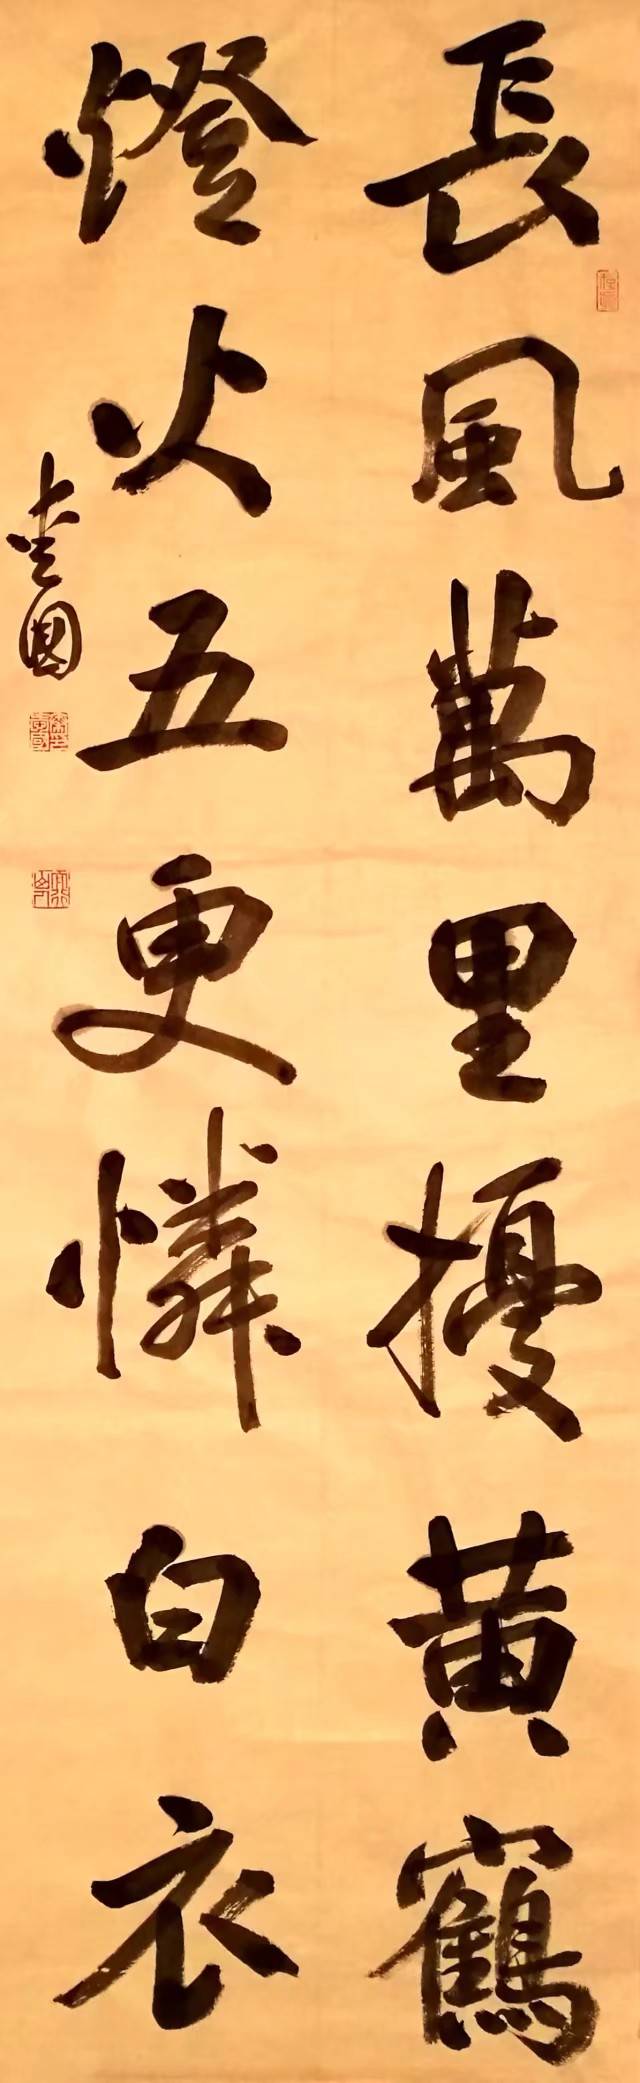 長風萬里擾黃鶴
燈火五更憐白衣